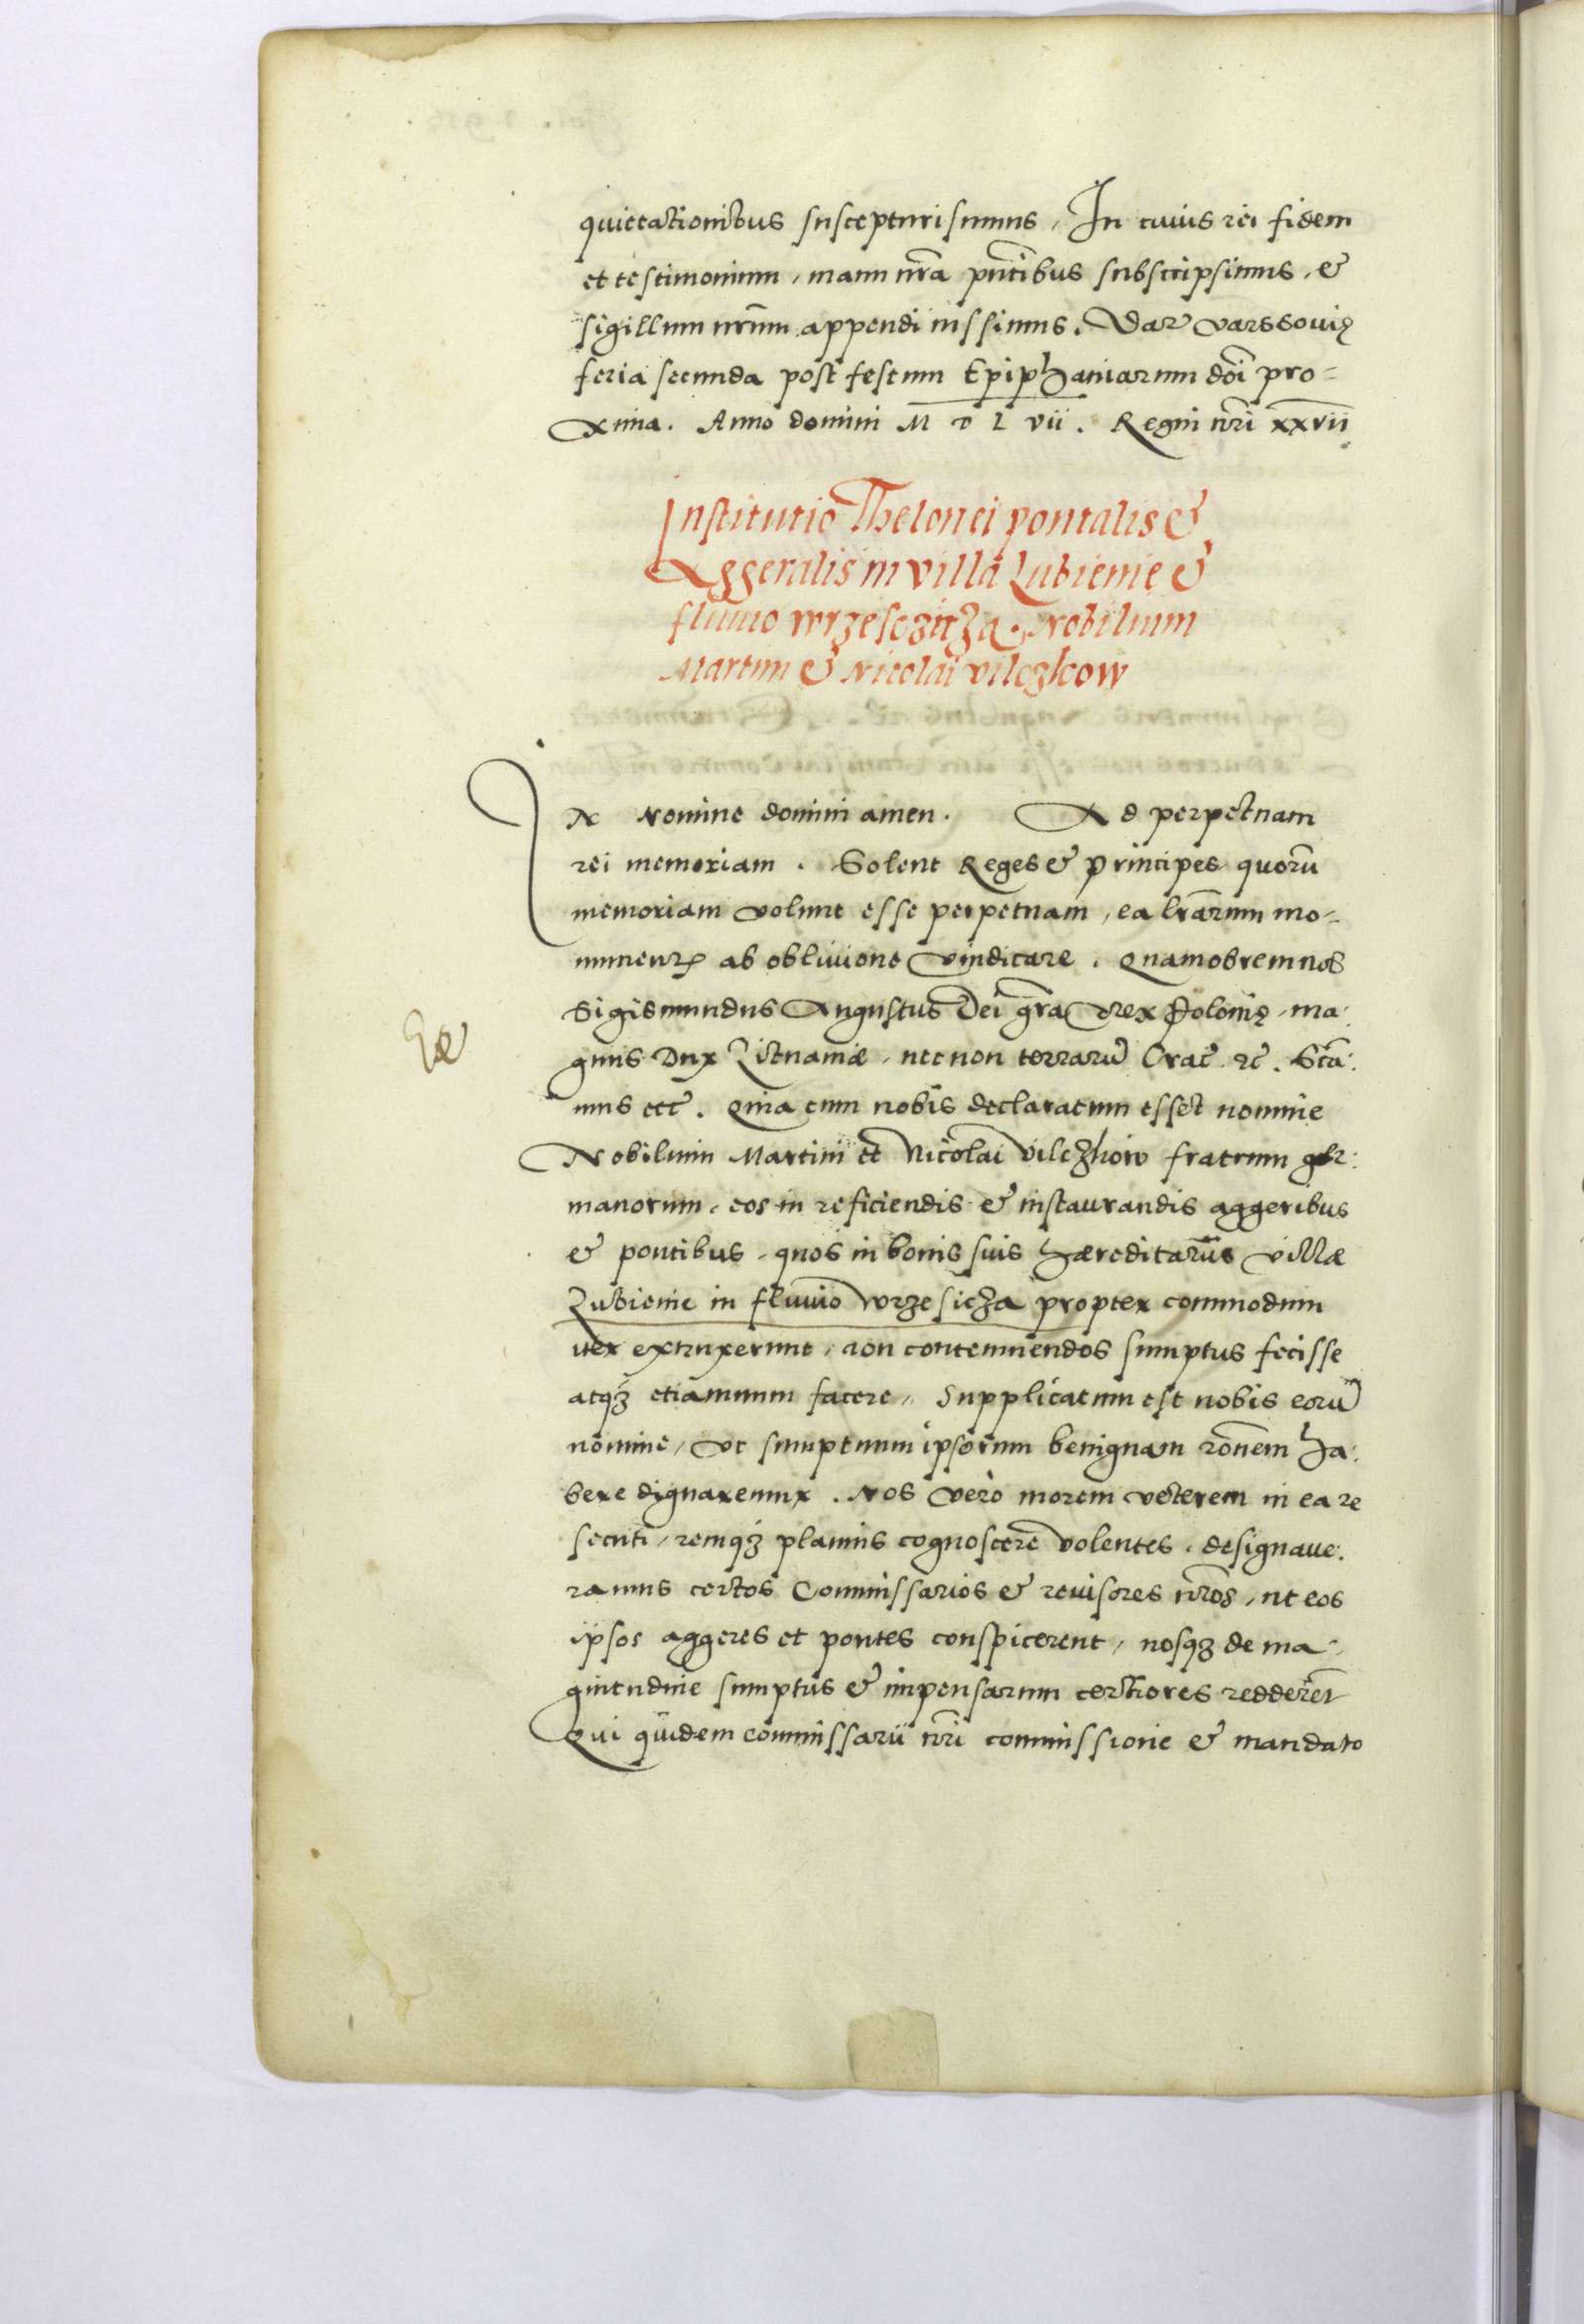 quietationibus suscepturi sumus, In cuius rei fidem
et testimonium, manu nr̄a pn̄tibus subscripsimus, &
sigillum nr̄um appendi iussimus. Dat Varssouię
feria secunda post festum Epiphaniarum dn̄i pro=
xima. Anno domini M D L vii. Regni nr̄i xxvii
Institutio Thelonei pontalis &
Aggeralis in villa Lubienie &
fluuio wrzesczitza. Nobilium
Martini & Nicolai vilczkow
IN Nomine domini amen. Ad perpetuam
rei memoriam. Solent Reges & Principes quorū
memoriam volunt esse perpetuam, ea lr̄arum mo-
numentꝭ ab obliuione vindicare. Quamobrem nos
Sigismundus Augustus Dei gr̄a Rex Polonię, ma:
gnus Dux Lituaniæ, necnon terrarū Crac̄ zc̄. Scā:
mus etc̄. Quia cum nobis declaratum esset nomine
Nobilium Martini et Nicolai Vilczkow fratrum ger:
manorum, eos in reficiendis & instaurandis aggeribus
& pontibus, quos in bonis suis hæreditariis villæ
Lubienie in fluuio wrzesicza propter commodum
iter extruxerunt, non contemnendos sumptus fecisse
atqꝫ etiamnum facere, Supplicatum est nobis eorū
nomine, vt sumptuum ipsorum benignam rōnem ha:
bere dignaremur. Nos verò morem veterem in ea re
secuti, remqꝫ planius cognoscere volentes, designaue:
ramus certos Commissarios & reuisores nr̄os, ut eos
ipsos aggeres et pontes conspicerent, nosqꝫ de ma-
gnitudine sumptus & impensarum certiores redderēt
Qui quidem commissarii nr̄i commissione & mandato